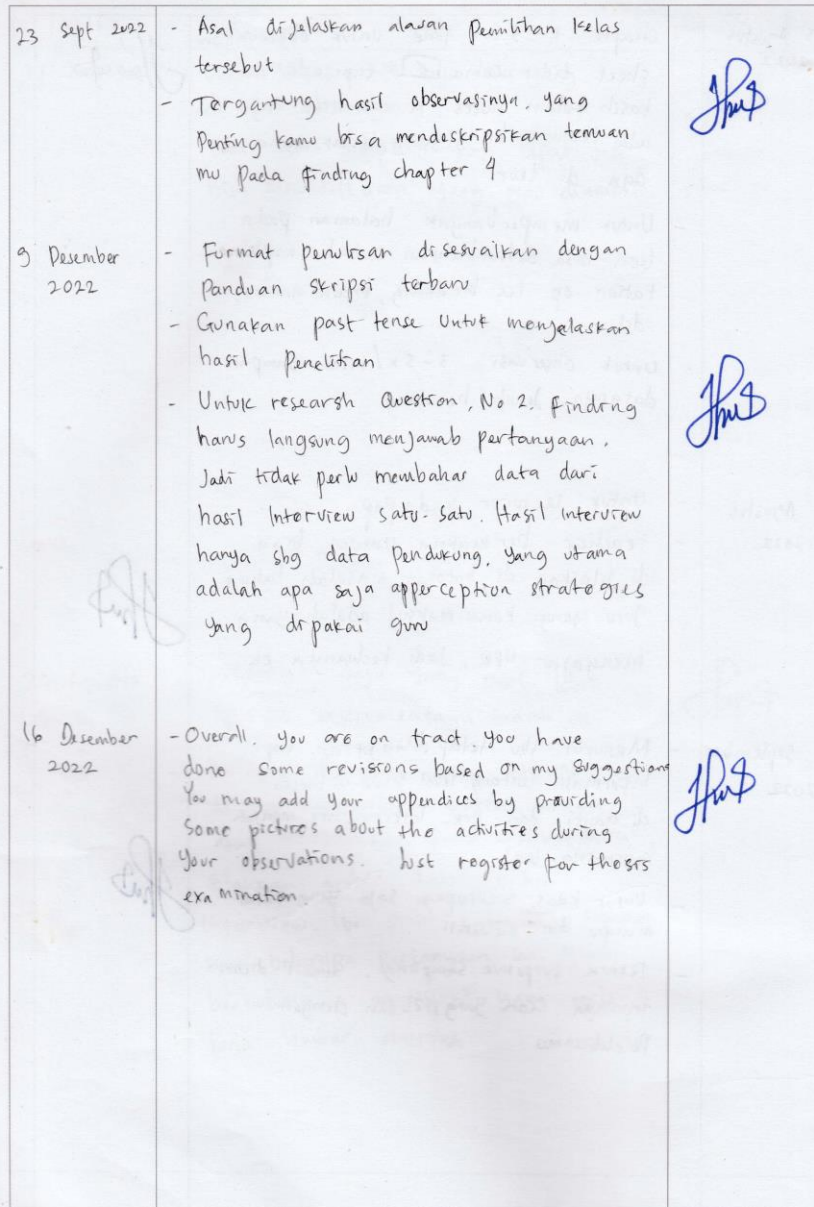 23 Sept 2022 - Asal dijelaskan alasan pemilihan kelas
tersebut
- Tergantung hasil observasinya, yang
penting kamu bisa mendeskripsikan temuan
mu pada finding chapter 4
9 Desember 2022 - Format penulisan disesuaikan dengan
panduan skripsi terbaru
- Gunakan past tense untuk menjelaskan
hasil penelitian
- Untuk researsh Question, No 2. finding
harus langsung menjawab pertanyaan.
Jadi tidak perlu membahas data dari
hasil Interview satu-satu. Hasil Interview
hanya sbg data pendukung, yang utama
adalah apa saja apperception strategies
yang dipakai guru
16 Desember 2022 - Overall. you are on tract you have
done some revisions based on my suggestions
You may add your appendices by providing
some pictures about the activities during
your observations. Just register for thesis
examination.